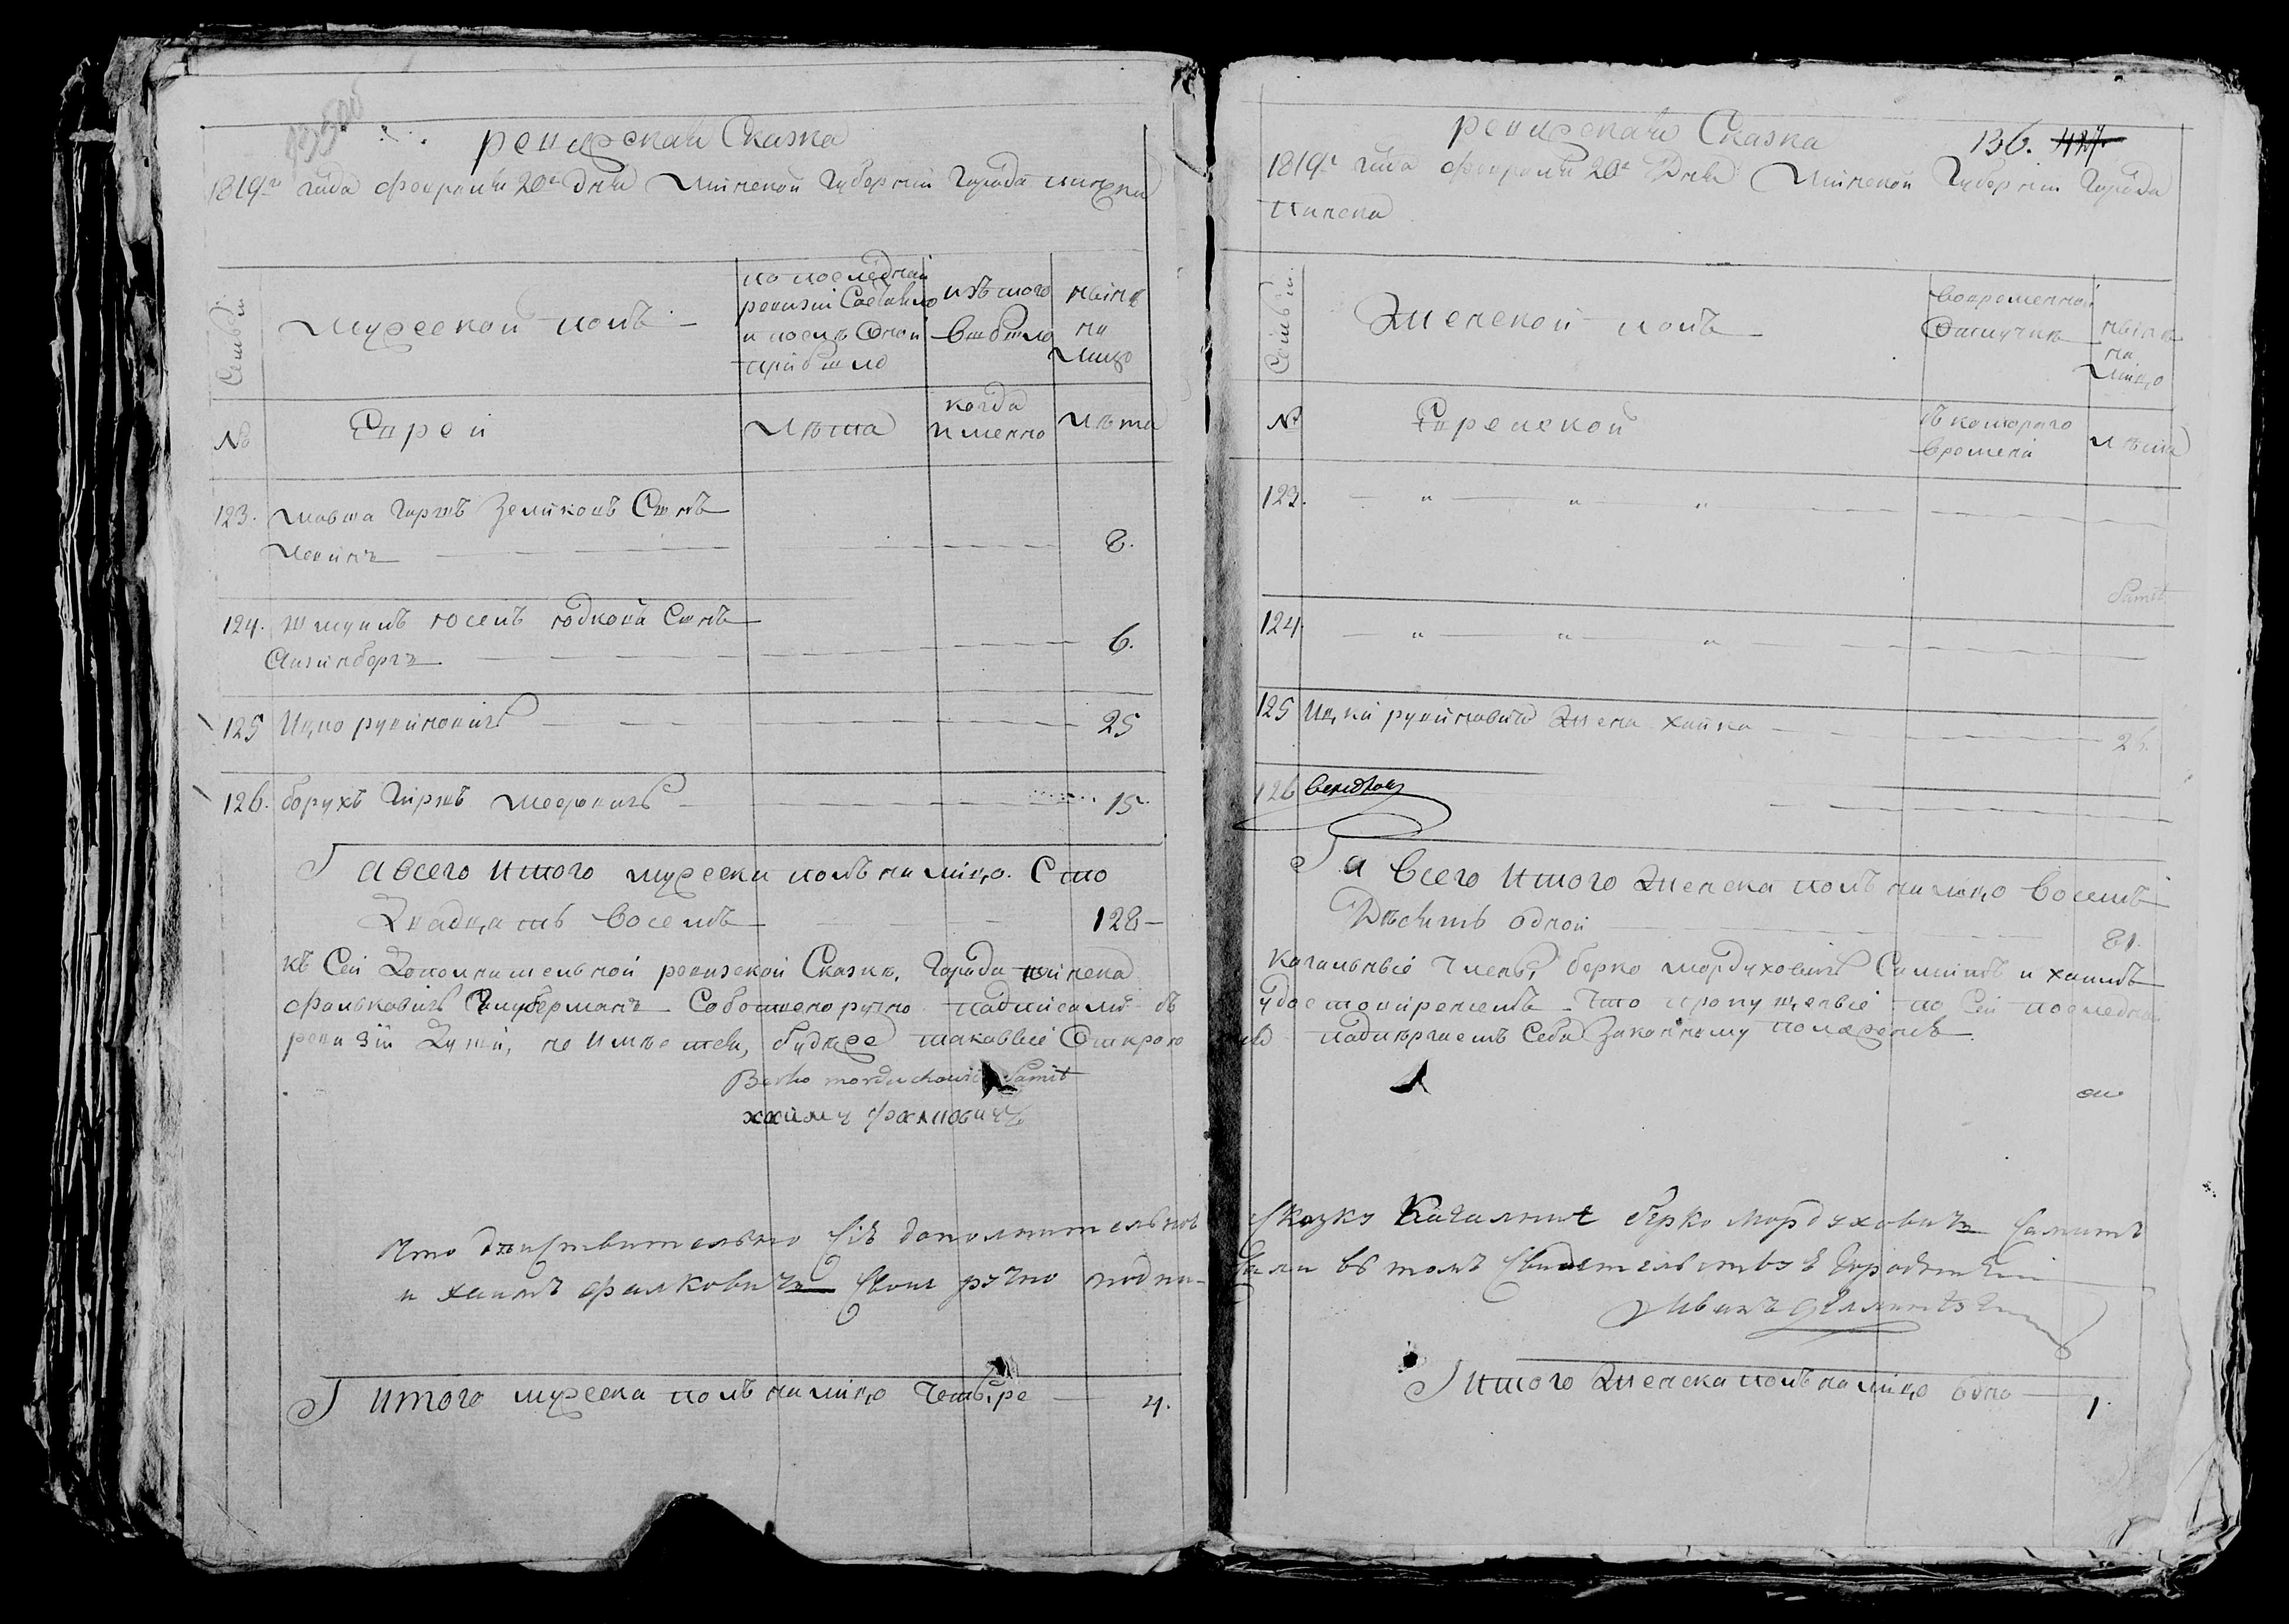 ревизская Сказка
1819го года февраля 20го дня Минской Губернии Города пинска
Семьи
Мужеской полъ
по последней
ревизии Состояло
и послъ Оной
прибыло
изъ того
выбыло
нынѣ
на
лицо
№
Евреи
Лѣта
когда
именно
Лѣта
123. Мовша Гиршъ Зеликовъ Сынъ
Левинъ 8.
124. Шмуилъ Іосель Юдковъ Сынъ
Айзинбергъ 6.
125 Ицко рувиновичъ 25
126. борухъ Гиршъ 15
А всего Итого мужеска полъ на лицо Сто
Двадцать восемъ 128
къ Сей Дополнительной ревизской Сказке, Города пинска
фальковичъ Собственоручно подписали въ
ревизіи Души, не имѣется, будже таковые Открою
Berko morduchowic Samit
хаимъ фалковичъ
Что действительно сію дополнительною
и хаимъ фалковичъ Своиручно подпи-
Итого мужеска полъ на лицо Четыре 4.
ревизская Сказка 136. 427
1819го года февраля 20го Дня Минской Губернии Города
Пинска
Семьи
Женской полъ
Вовременной
Отлучке
нынѣ
на
лицо
№
Еврейской
съ котораго
времени
Лѣта
123. " " "
Samit
124 " " "
125 Ицки рувиновича Жена хайка 26.
126
А Всего Итого Женска полъ на лицо Восемъ
Десять одной 81.
Кагальные Члены, берко мордуховичъ Самитъ и хаимъ
удостоверяемъ что пропущенные по Сей последней
подвергаемъ Себя Законному
Сказку Кагалние берко Мордуховичъ Самитъ
сали въ томъ Свидетельствуе
Иванъ
Итого Женска полъ на лицо одна 1.